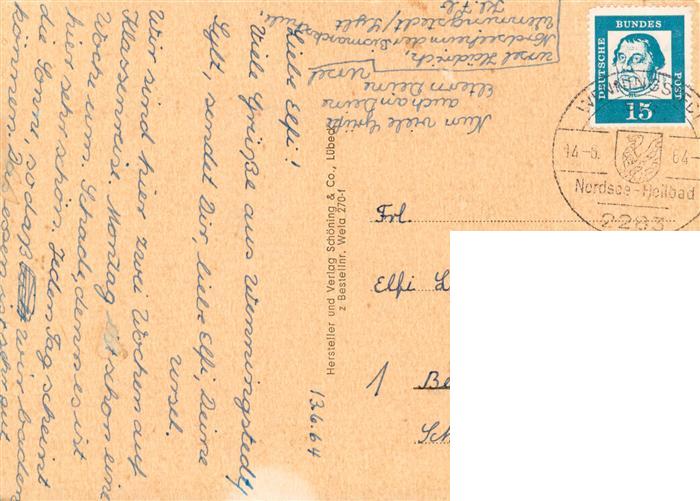 13.6.64
Liebe Elfi!
Viele Grüße aus Wenningstedt/
Sylt, sendet Dir, liebe Elfi, Deine
Ursel.
Wir sind hier zwei Wochen auf
Klassenreise. Montag ist schon eine
Woche um. Schade, denn es ist
hier sehr schön. Jeden Tag scheint
die Sonne, sodaß wir baden
können. Das Essen ist sehr gut
Nun viele Grüße
auch an Deine
Eltern Deine
Ursel
Ursel Heidrich,
Nordseeheim der Bismarckschule
Wenningstedt/Sylt
Hersteller und Verlag Schöning & Co., Lübeck
z Bestellnr. Wela 270-f
DEUTSCHE BUNDES POST
15
WENNINGSTE
14-6. 64-
Nordsee-Heilbad
2283
Frl.
Elfi L
1 Be
Sch